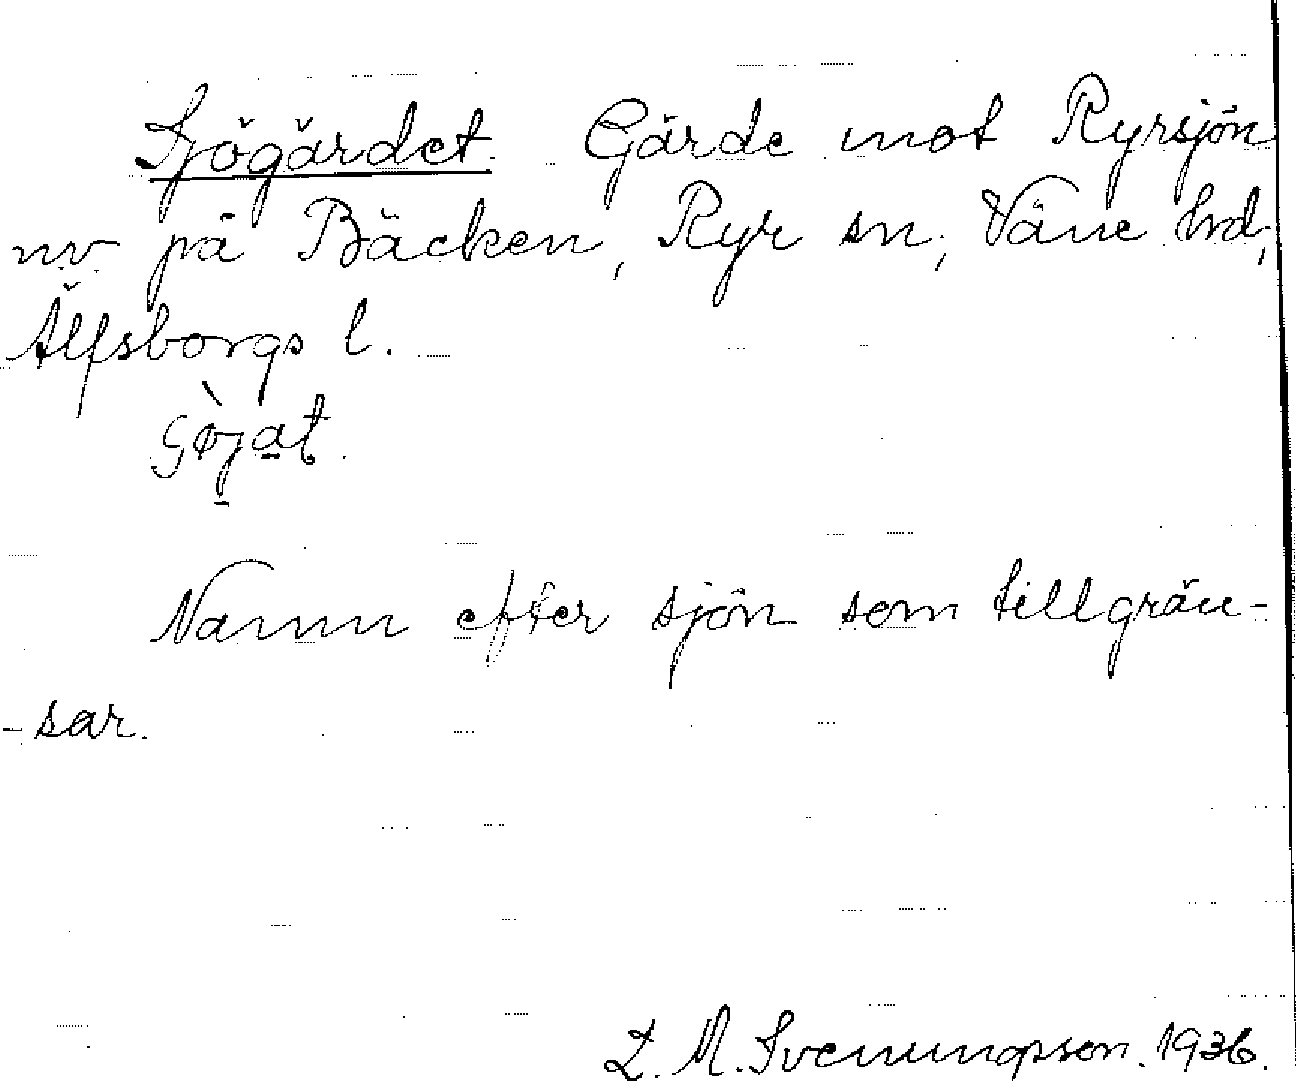 Sjögärdet. Gärde mot Ryrsjön
nv på Bäcken, Ryr sn, Väne hd,
Älfsborgs l.
Namn efter sjön som tillgrän-
-sar.
L. M. Svenungsson. 1936.